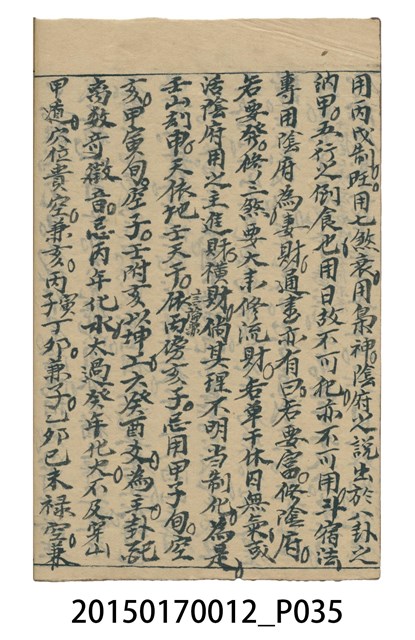 用丙戊制旺用七煞衰用梟神陰府之說出於八卦之
納甲五行之例食也用日故不可犯亦不可用斗宿法
專用陰府為妻財通書亦有曰若要富修陰府
若要發修三煞要大未修流財若單干休因無氣或
活陰府用之主進財橫財倘其理不明当制化為是
壬山剋申天依地壬天干休丙滂亥子忌用甲子旬空
亥甲寅旬空子壬附亥以坤上六癸酉爻為主卦純
离数奇徵音忌丙年化水太過癸年化火不足穿山
甲遁穴位貴空兼亥丙子寅丁卯兼子乙卯巳未祿空兼
20150170012_P035